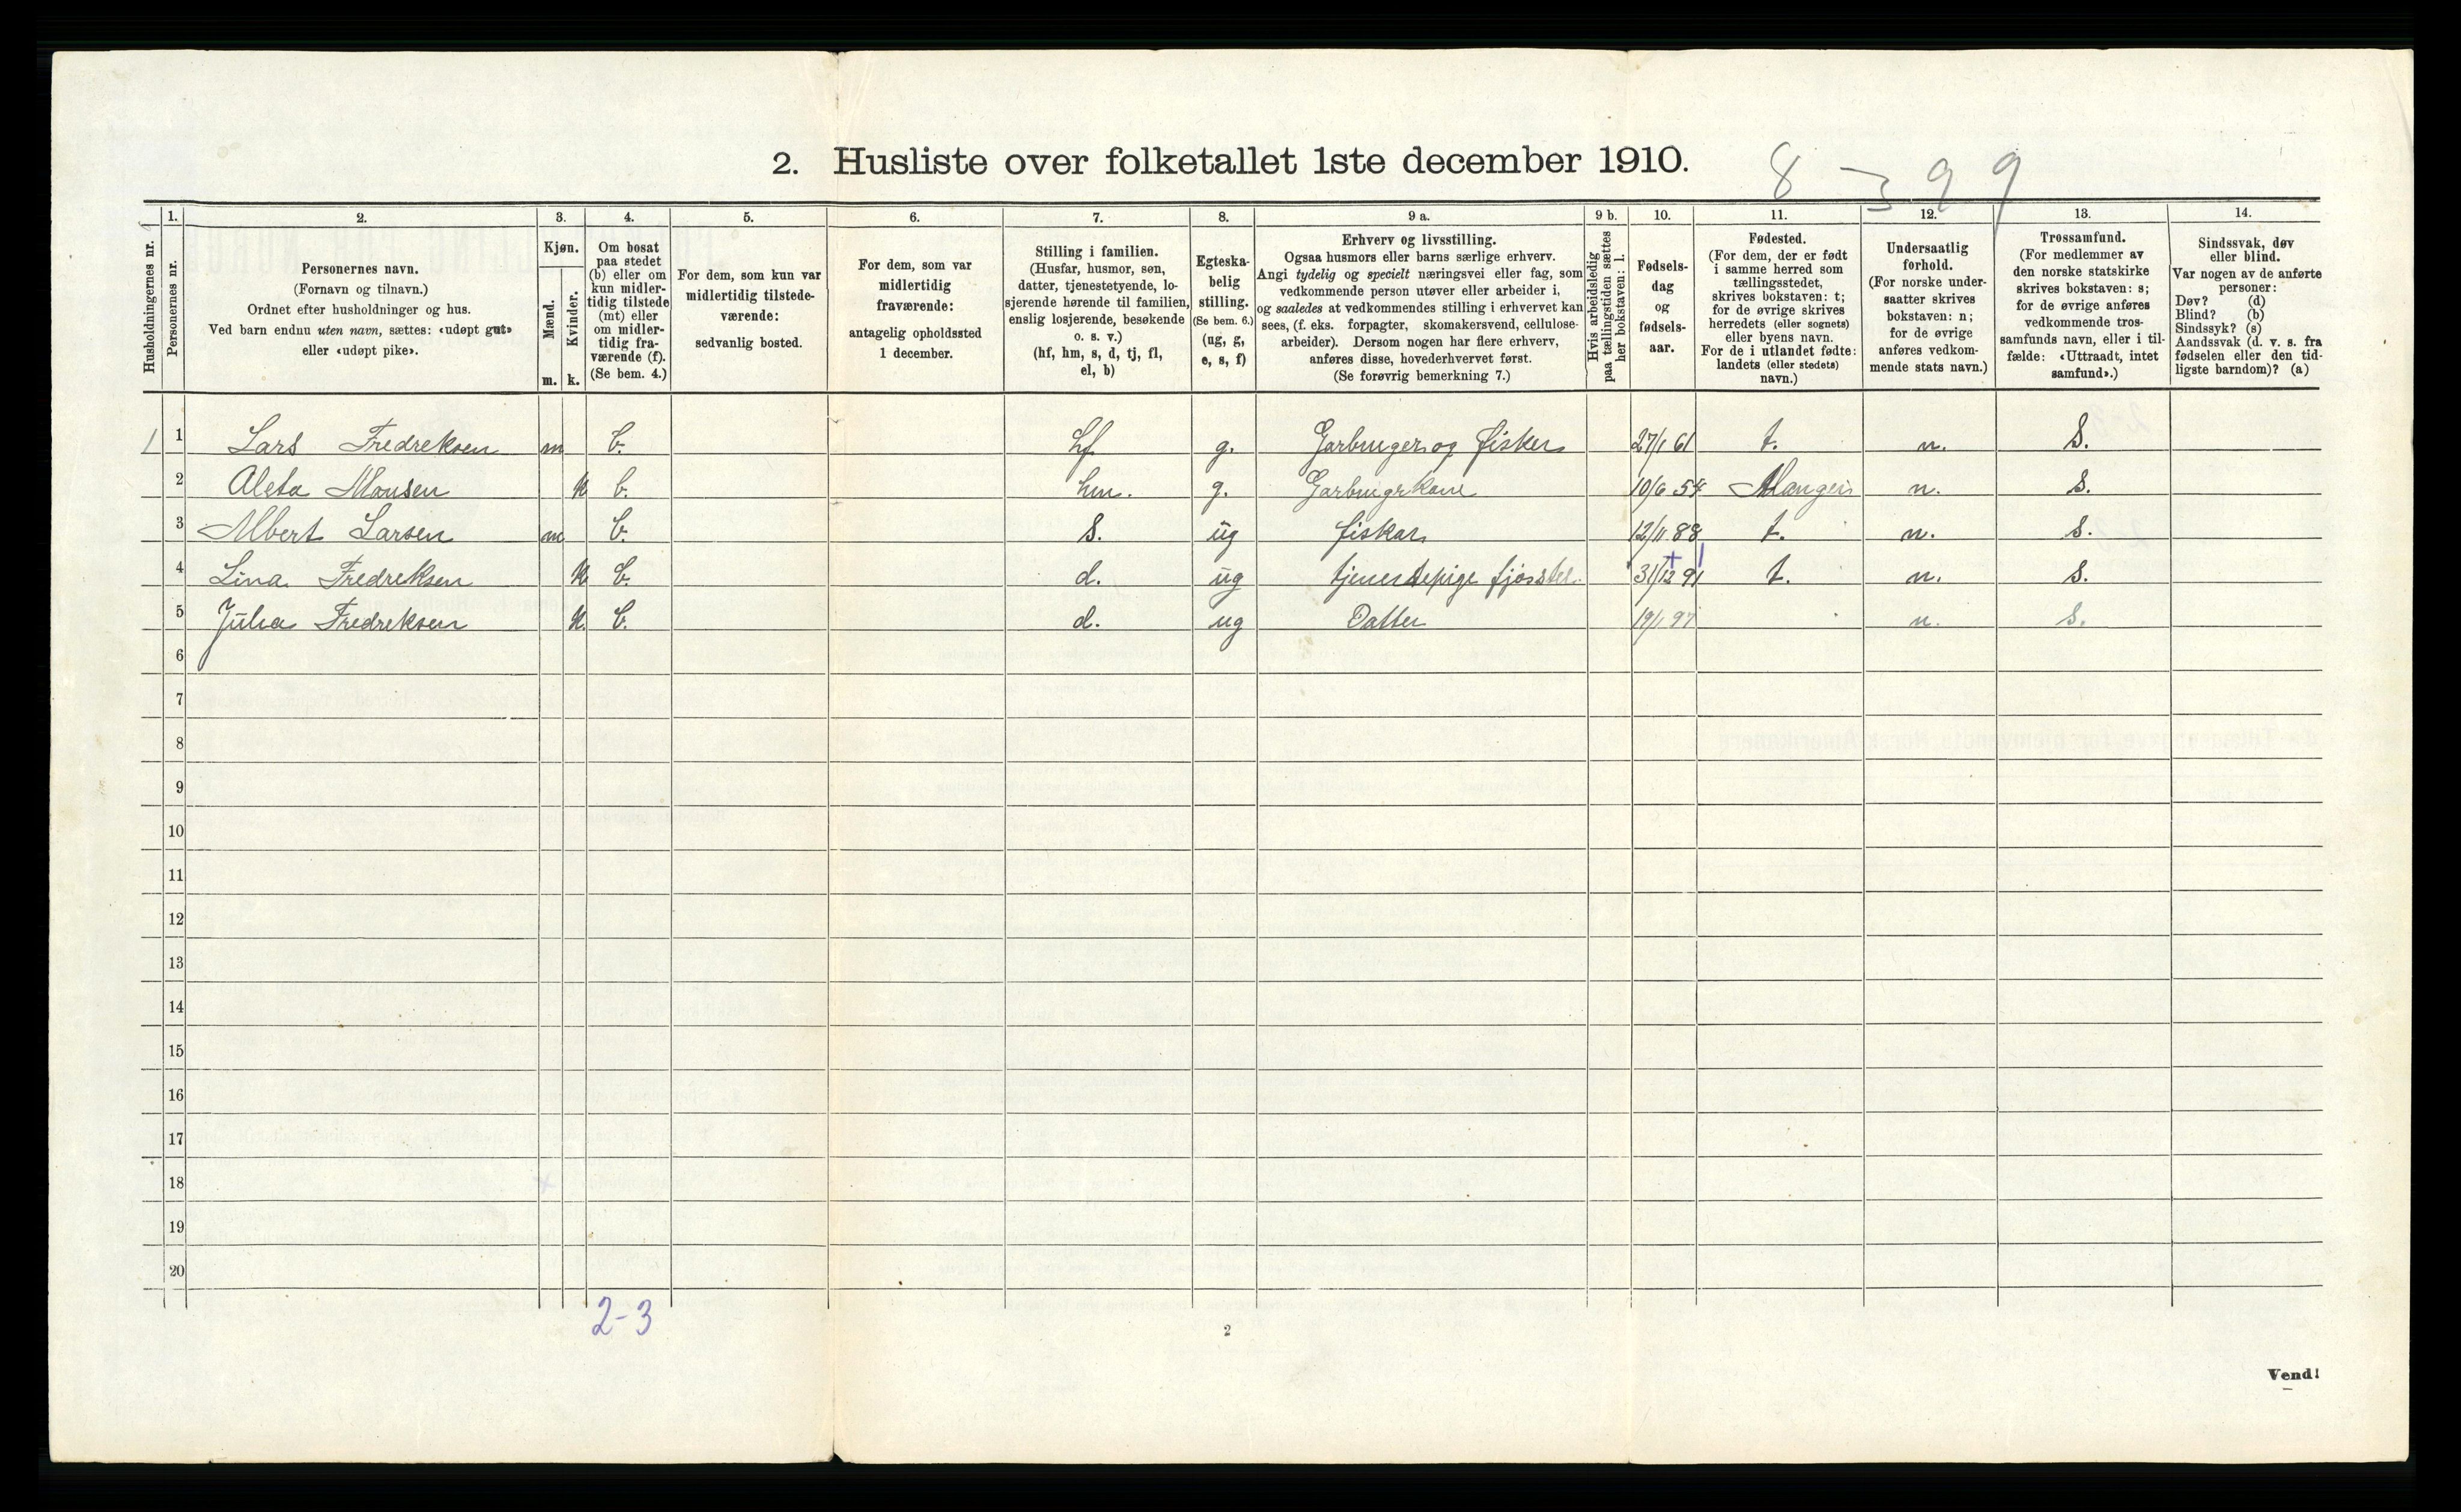 2. Husliste over folketallet 1ste december 1910.
8 – 3 9 9
Husholdningernes nr.
1.
Personernes nr.
2.
Personernes navn.
(Fornavn og tilnavn.)
Ordnet efter husholdninger og hus.
Ved barn endnu uten navn, sættes: «udøpt gut»
eller «udøpt pike».
3.
Kjøn.
Mænd.
Kvinder.
m. k.
4.
Om bosat
paa stedet
(b) eller om
kun midler-
tidig tilstede
(mt) eller
om midler-
tidig fra-
værende (f).
(Se bem. 4.)
5.
For dem, som kun var
midlertidig tilstede-
værende:
sedvanlig bosted.
6.
For dem, som var
midlertidig
fraværende:
antagelig opholdssted
1 december.
7.
Stilling i familien.
(Husfar, husmor, søn,
datter, tjenestetyende, lo-
sjerende hørende til familien,
enslig losjerende, besøkende
o. s. v.)
(hf, hm, s, d, tj, fl,
el, b)
8.
Egteska-
belig
stilling.
(Se bem. 6.)
(ug, g,
e, s, f)
9 a.
Erhverv og livsstilling.
Ogsaa husmors eller barns særlige erhverv.
Angi tydelig og specielt næringsvei eller fag, som
vedkommende person utøver eller arbeider i,
og saaledes at vedkommendes stilling i erhvervet kan
sees, (f. eks. forpagter, skomakersvend, cellulose-
arbeider). Dersom nogen har flere erhverv,
anføres disse, hovederhvervet først.
(Se forøvrig bemerkning 7.)
9 b.
Hvis arbeidsledig
paa tællingstiden sættes
her bokstaven: l.
10.
Fødsels-
dag
og
fødsels-
aar.
11.
Fødested.
(For dem, der er født
i samme herred som
tællingsstedet,
skrives bokstaven: t;
for de øvrige skrives
herredets (eller sognets)
eller byens navn.
For de i utlandet fødte:
landets (eller stedets)
navn.)
12.
Undersaatlig
forhold.
(For norske under-
saatter skrives
bokstaven: n;
for de øvrige
anføres vedkom-
mende stats navn.)
13.
Trossamfund.
(For medlemmer av
den norske statskirke
skrives bokstaven: s;
for de øvrige anføres
vedkommende tros-
samfunds navn, eller i til-
fælde: «Uttraadt, intet
samfund».)
14.
Sindssvak, døv
eller blind.
Var nogen av de anførte
personer:
Døv? (d)
Blind? (b)
Sindssyk? (s)
Aandssvak (d. v. s. fra
fødselen eller den tid-
ligste barndom)? (a)
1 1 Lars Fredreksen m b. hf g. Garbruger og fisker 27/1 61 t. n. S.
2 Aleta Monsen k b. hm. g. Garbrugrkone 10/6 54 Manger n. S.
3 Albert Larsen m b. S. ug fiskar 12/11 88 t. n. S.
4 Lina Fredreksen k b. d. ug tjenestepige fjøsstel. 31/12 91 t. n. S.
5 Julia Fredreksen k. b. d. ug Datter 19/1 97 n. S.
6
7
8
9
10
11
12
13
14
15
16
17
18
19
20
2-3
2
Vend!